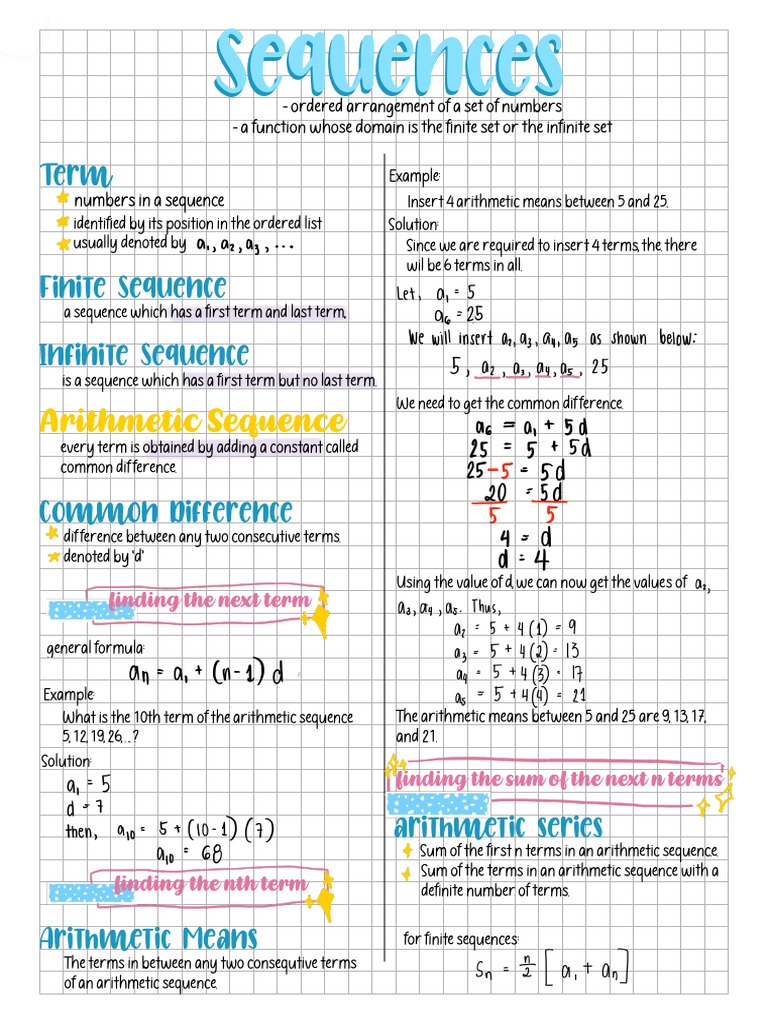 Sequences
- ordered arrangement of a set of numbers
- a function whose domain is the finite set or the infinite set
Term
numbers in a sequence
identified by its position in the ordered list
usually denoted by a₁, a₂, a₃, ...
Finite Sequence
a sequence which has a first term and last term,
Infinite Sequence
is a sequence which has a first term but no last term.
Arithmetic Sequence
every term is obtained by adding a constant called
common difference.
Common Difference
difference between any two consecutive terms.
denoted by 'd'
finding the next term
general formula:
aₙ = a₁ + (n-1) d
Example:
What is the 10th term of the arithmetic sequence
5, 12, 19, 26...?
Solution:
a₁ = 5
d = 7
then, a₁₀ = 5 + (10-1) (7)
a₁₀ = 68
finding the nth term
Arithmetic Means
The terms in between any two consequtive terms
of an arithmetic sequence.
Example:
Insert 4 arithmetic means between 5 and 25.
Solution:
Since we are required to insert 4 terms, the. there
wil be 6 terms in all.
Let, a₁ = 5
a₆ = 25
We will insert a₂, a₃, a₄, a₅ as shown below:
5, a₂, a₃, a₄, a₅, 25
We need to get the common difference.
a₆ = a₁ + 5d
25 = 5 + 5d
25 - 5 = 5d
20 = 5d
5 5
4 = d
d = 4
Using the value of d, we can now get the values of a₂,
a₃, a₄, a₅. Thus,
a₂ = 5 + 4(1) = 9
a₃ = 5 + 4(2) = 13
a₄ = 5 + 4(3) = 17
a₅ = 5 + 4(4) = 21
The arithmetic means between 5 and 25 are 9, 13, 17,
and 21.
finding the sum of the next n terms
arithmetic series
Sum of the first n terms in an arithmetic sequence.
Sum of the terms in an arithmetic sequence with a
definite number of terms.
for finite sequences:
Sₙ = n/2 [a₁ + aₙ]